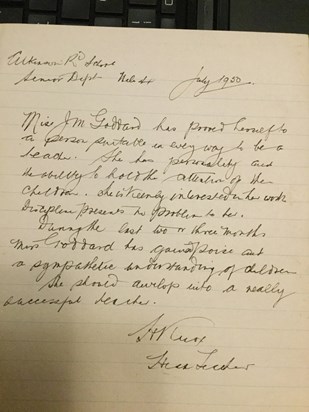 Atkinson Rd School
Senior Dept July 1930
Miss J M Goddard has proved herself to
a person suitable in every way to be a
teacher. She has personality and
the ability to hold the attention of the
children. She is keenly interested in her work.
Discipline presents no problem to her.
During the last two or three months
Miss Goddard has gained poise and
a sympathetic understanding of children
She should develop into a really
successful teacher.
Head Teacher